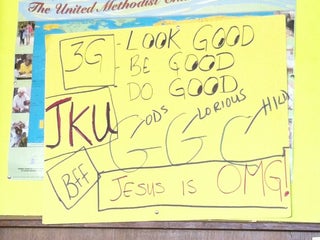 The United Methodist
3G - LOOK GOOD
- BE GOOD
- DO GOOD
JKU GODS GLORIOUS CHILD
BFF JESUS IS OMG.